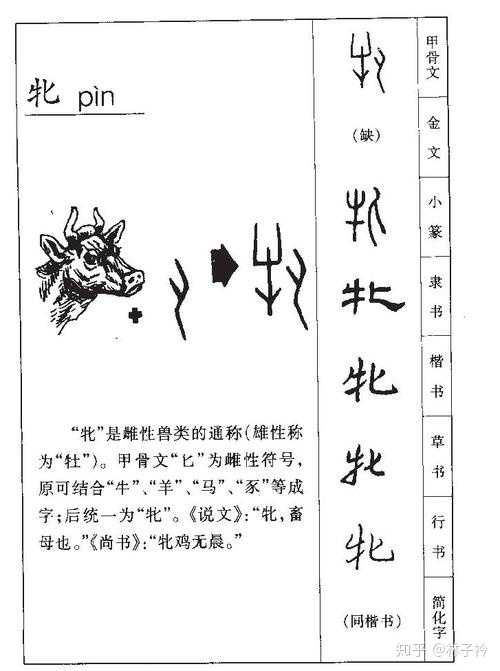 牝 pìn
“牝”是雌性兽类的通称(雄性称
为“牡”)。甲骨文“匕”为雌性符号,
原可结合“牛”、“羊”、“马”、“豕”等成
字;后统一为“牝”。《说文》:“牝,畜
母也。”《尚书》:“牝鸡无晨。”
牝 甲骨文
(缺) 金文
牝 小篆
牝 隶书
牝 楷书
牝 草书
牝 行书
(同楷书) 简化字
知乎 @林子衿